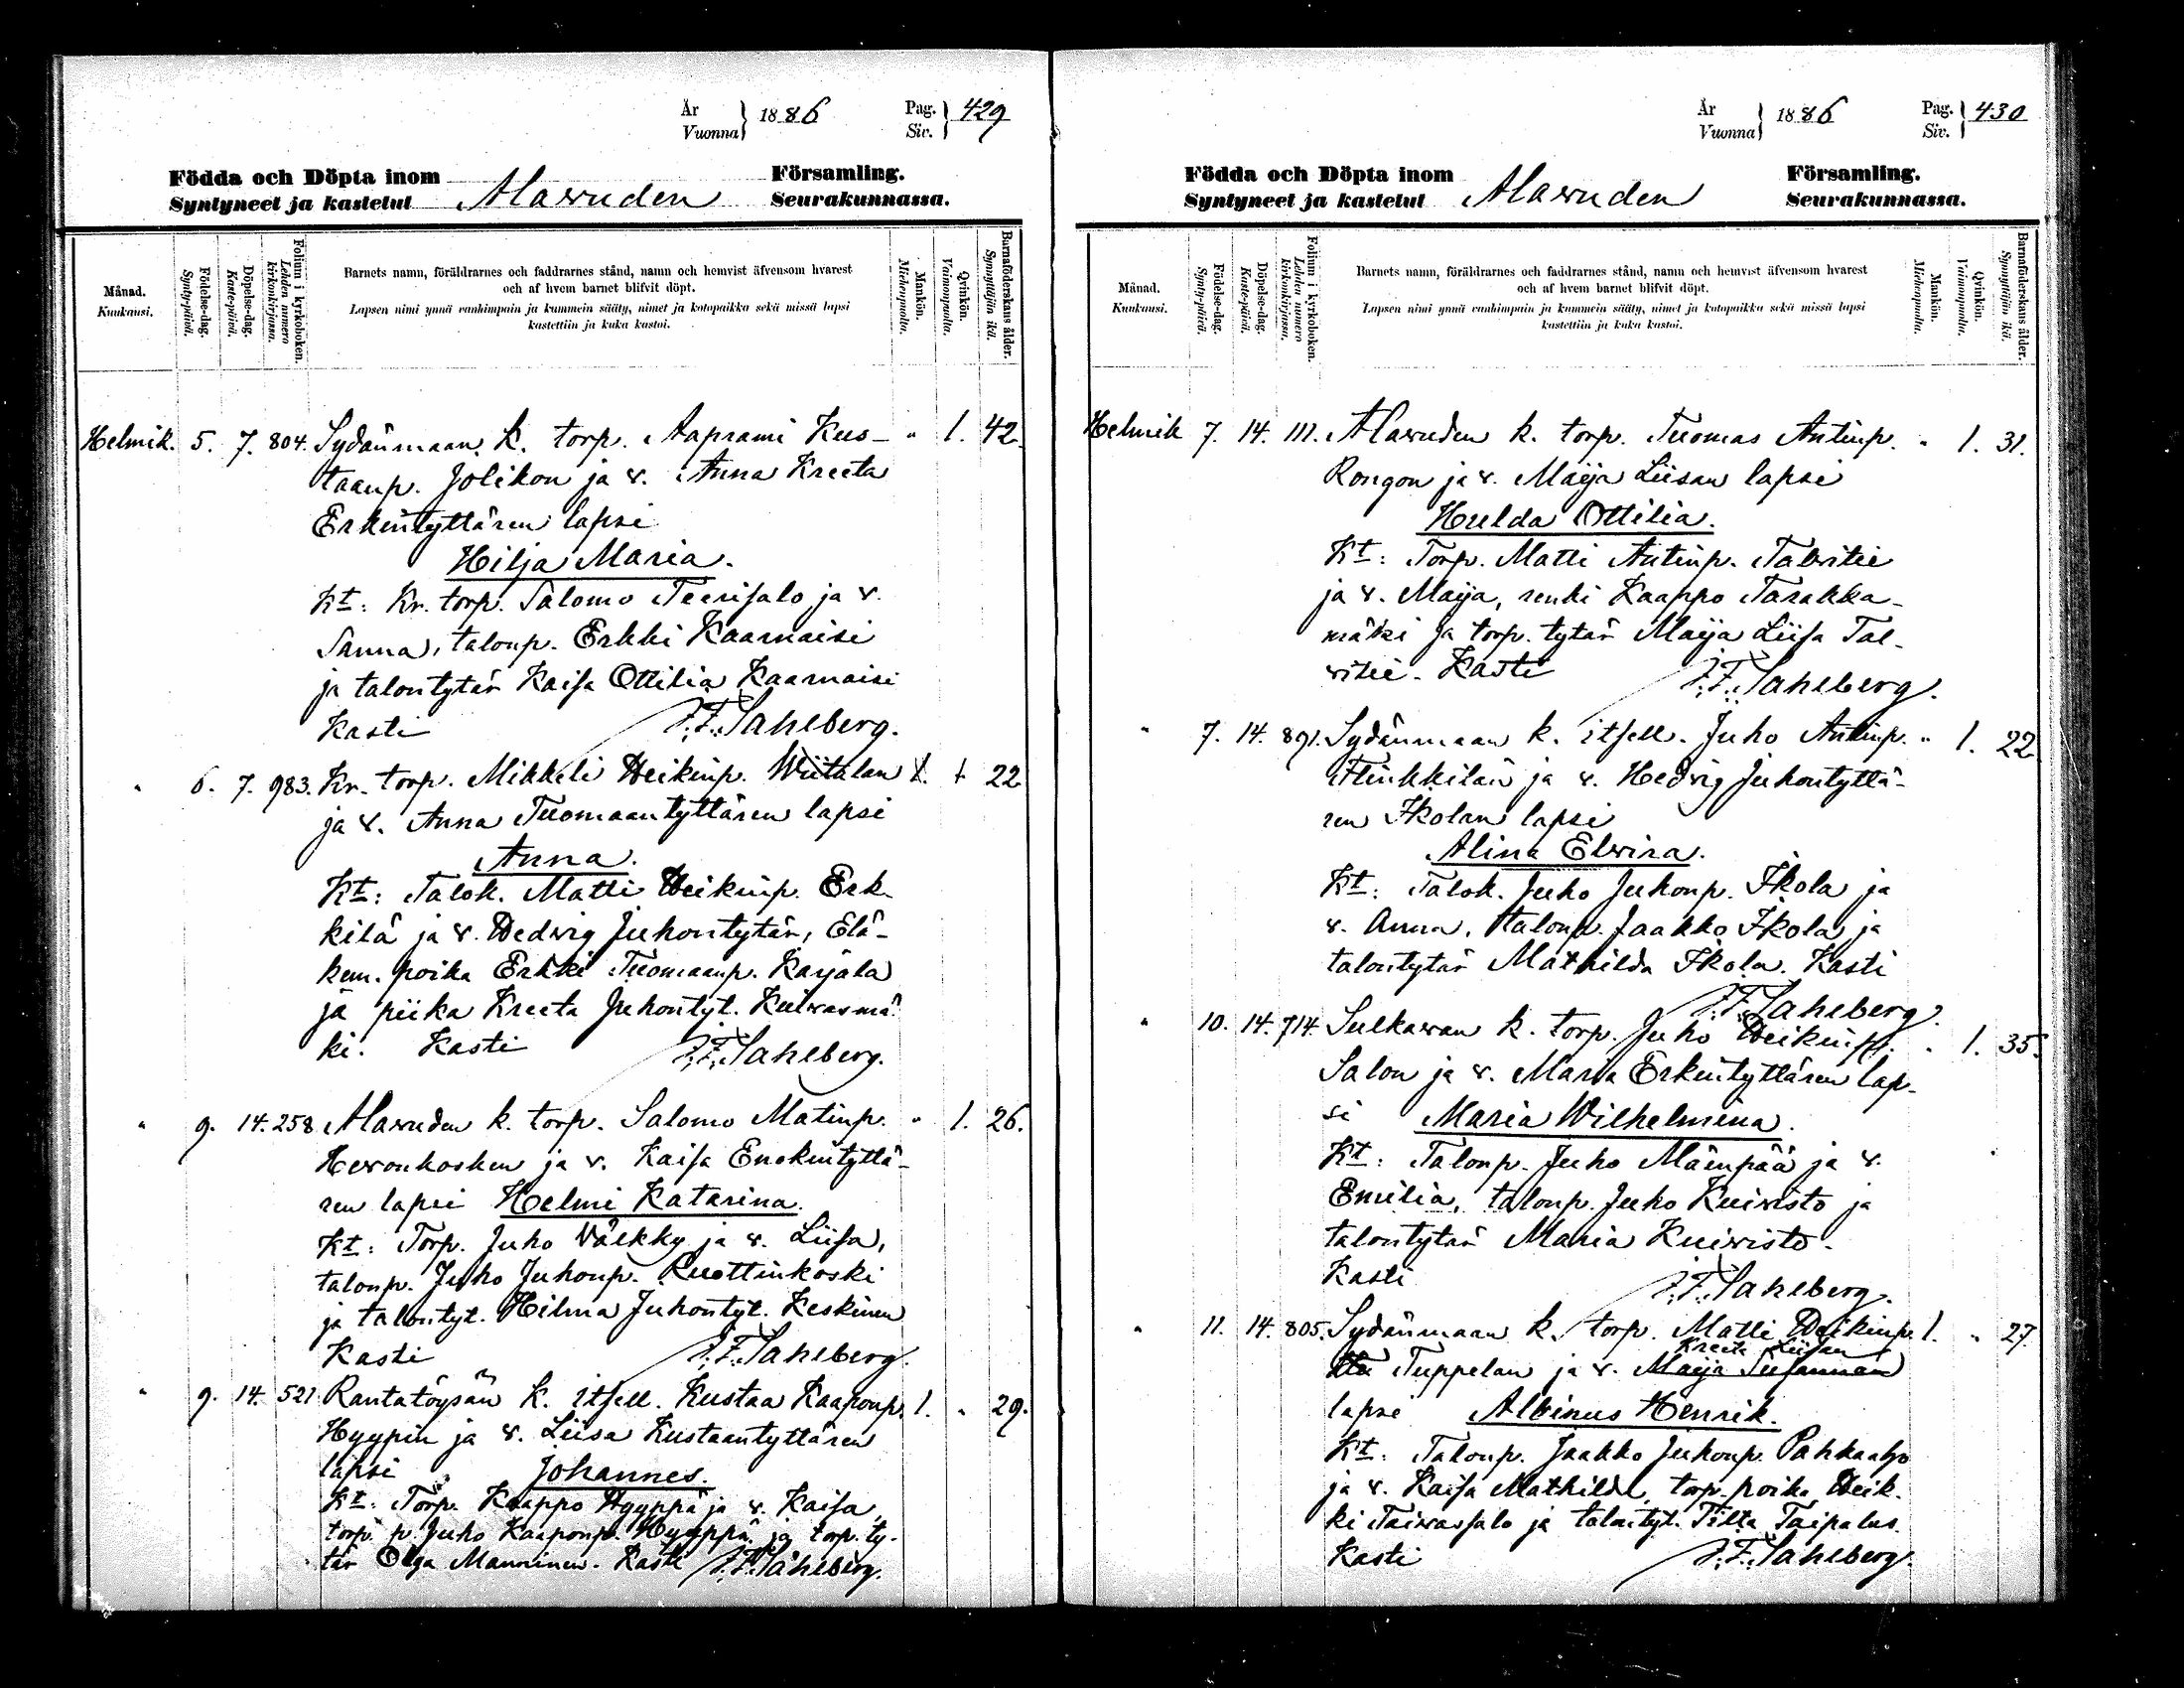 År
Vuonna
1886
Pag.
Siv.
429
Födda och Döpta inom
Församling.
Syntyneet ja kastetut
Alavuden
Seurakunnassa.
Månad.
Kuukausi.
Födelse-dag.
Synty-päivä.
Döpelse-dag.
Kaste-päivä.
Folium i kyrkoboken.
Lehden numero kirkonkirjassa.
Barnets namn, föräldrarnes och faddrarnes stånd, namn och hemvist äfvensom hvarest
och af hvem barnet blifvit döpt.
Lapsen nimi ynnä vanhimpain ja kummein sääty, nimet ja kotopaikka sekä missä lapsi
kastettiin ja kuka kastoi.
Mankön.
Miehenpuolta.
Qvinkön.
Vaimonpuolta.
Barnaföderskans ålder.
Synnyttäjän ikä.
Helmik. 5. 7. 804. Sydänmaan k. torp. Aaprami Kus- " 1. 42.
taanp. Jolikon ja v. Anna Kreeta
Erkintyttären lapsi
Hilja Maria.
Kt: Kr. torp. Salomo Teerisalo ja v.
Sanna, talonp. Erkki Kaarnaisi
ja talontytär Kaisa Ottilia Kaarnaisi
Kasti J. F. Sahlberg.
" 6. 7. 983. Kr. torp. Mikkeli Heikinp. Wiitalan 1. + 22
ja v. Anna Tuomaantyttären lapsi
Anna.
Kt: Talok. Matti Heikinp. Erk-
kilä ja v. Hedvig Juhontytär, Elä-
kem. poika Erkki Tuomaanp. Karjala
ja piika Kreeta Juhontyt. Kuivasmä-
ki. Kasti J. F. Sahlberg.
" 9. 14. 258 Alavuden k. torp. Salomo Matinp. " 1. 26.
Hevonkosken ja v. Kaisa Enokintyttä-
ren lapsi Helmi Katarina.
Kt: Torp. Juho Välkky ja v. Liisa,
talonp. Juho Juhonp. Ruottinkoski
ja talontyt. Hilma Juhontyt. Keskinen
Kasti J. F. Sahlberg.
" 9. 14. 521 Rantatöysän k. itsell. Kustaa Kaaponp. 1. " 29.
Hyypin ja v. Liisa Kustaantyttären
lapsi Johannes.
Kt: Torp. Kaappo Hyyppä ja v. Kaisa,
torp. p. Juho Kaaponp. Hyyppä ja torp. ty-
tär Olga Manninen. Kasti J. F. Sahlberg.
År
Vuonna
1886
Pag.
Siv.
430
Födda och Döpta inom
Församling.
Syntyneet ja kastetut
Alavuden
Seurakunnassa.
Månad.
Kuukausi.
Födelse-dag.
Synty-päivä.
Döpelse-dag.
Kaste-päivä.
Folium i kyrkoboken.
Lehden numero kirkonkirjassa.
Barnets namn, föräldrarnes och faddrarnes stånd, namn och hemvist äfvensom hvarest
och af hvem barnet blifvit döpt.
Lapsen nimi ynnä vanhimpain ja kummein sääty, nimet ja kotopaikka sekä missä lapsi
kastettiin ja kuka kastoi.
Mankön.
Miehenpuolta.
Qvinkön.
Vaimonpuolta.
Barnaföderskans ålder.
Synnyttäjän ikä.
Helmik 7. 14. 111. Alavuden k. torp. Tuomas Antinp. " 1. 31.
Rongon ja v. Maija Liisan lapsi
Hulda Ottilia.
Kt: Torp. Matti Antinp. Talvitie
ja v. Maija, renki Kaappo Tarakka-
mäki ja torp. tytär Maija Liisa Tal-
vitie. Kasti J. F. Sahlberg.
" 7. 14. 891. Sydänmaan k. itsell. Juho Antinp. " 1. 22
Flinkkilän ja v. Hedvig Juhontyttä-
ren Ikolan lapsi
Alina Elvira.
Kt: Talok. Juho Juhonp. Ikola ja
v. Anna, talonp. Jaakko Ikola ja
talontytär Mathilda Ikola. Kasti
J. F. Sahlberg.
" 10. 14. 714. Sulkavan k. torp. Juho Heikinp. " 1. 35.
Salon ja v. Maria Erkintyttären lap-
si Maria Wilhelmina.
Kt: Talonp. Juho Mäenpää ja v.
Emilia, talonp. Juho Kuivisto ja
talontytär Maria Kuivisto.
Kasti J. F. Sahlberg.
" 11. 14. 805. Sydänmaan k. torp. Matti Heikinp. 1. " 27.
Kreeta Liisan
Tuppelan ja v. Maija Susannan
lapsi Albinus Henrik.
Kt: Talonp. Jaakko Juhonp. Pahkaaho
ja v. Kaisa Mathilda, torp. poika Heik-
ki Taivassalo ja talontyt. Tilta Taipalus.
Kasti J. F. Sahlberg.